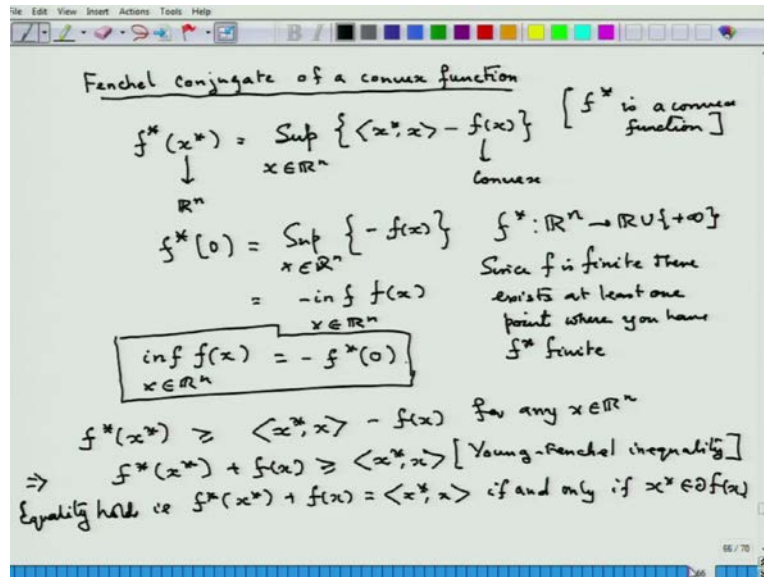 File Edit View Insert Actions Tools Help
Fenchel conjugate of a convex function
f*(x*) = Sup {<x*, x> - f(x)} [f* is a convex function]
x ∈ ℝⁿ
↓ ℝⁿ
↓ Convex
f*(0) = Sup {- f(x)}
x ∈ ℝⁿ
= - inf f(x)
x ∈ ℝⁿ
f* : ℝⁿ → ℝ ∪ {+∞}
Since f is finite there
exists at least one
point where you have
f* finite
inf f(x) = - f*(0)
x ∈ ℝⁿ
f*(x*) ≥ <x*, x> - f(x) for any x ∈ ℝⁿ
⇒ f*(x*) + f(x) ≥ <x*, x> [Young-Fenchel inequality]
Equality holds ie f*(x*) + f(x) = <x*, x> if and only if x* ∈ ∂f(x)
66 / 70
66